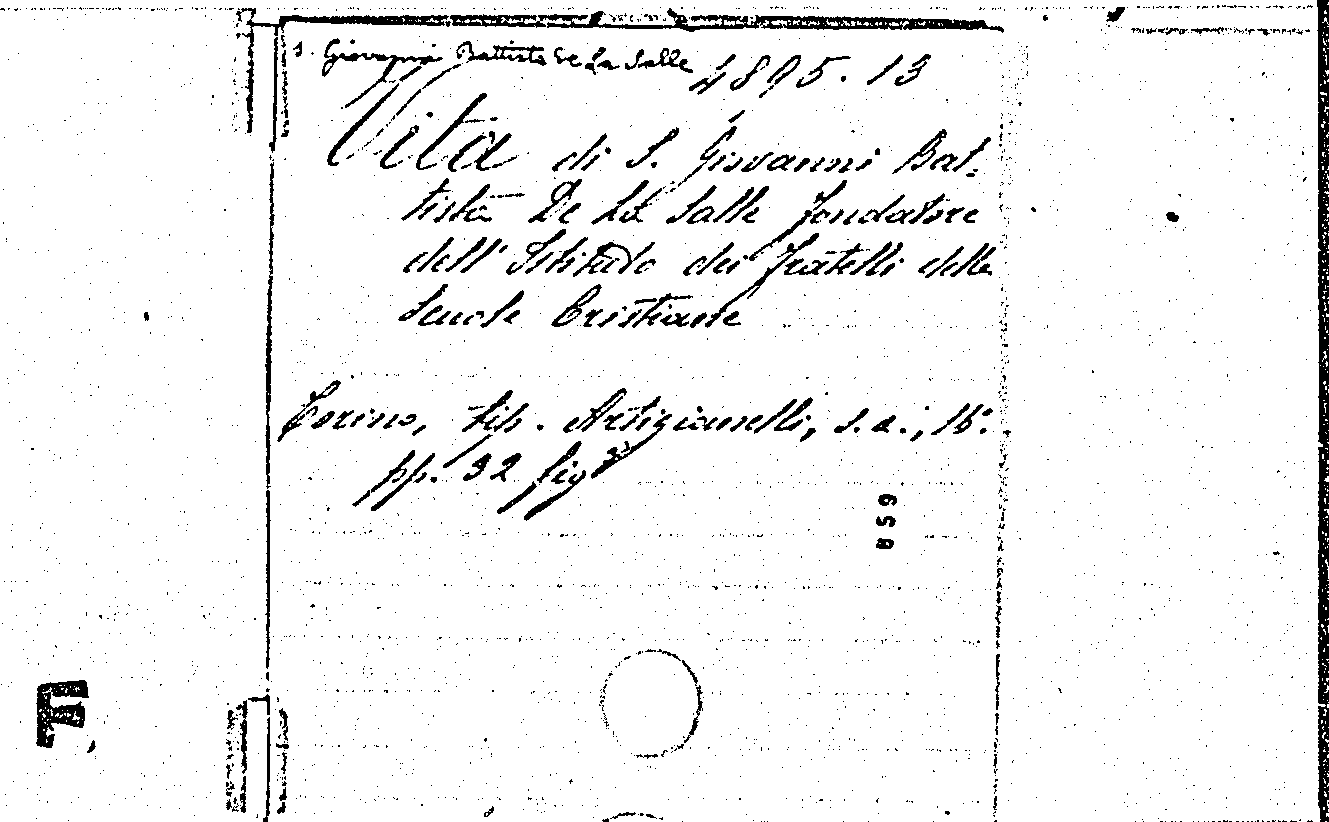 S. Giovanni Battista De La Salle
4895.13
Vita di S. Giovanni Bat-
tista De La Salle fondatore
dell'Istituto dei Fratelli delle
Scuole Cristiane
Torino, tip. Artigianelli, s.a., 16°.
pp. 32 fig
859
E